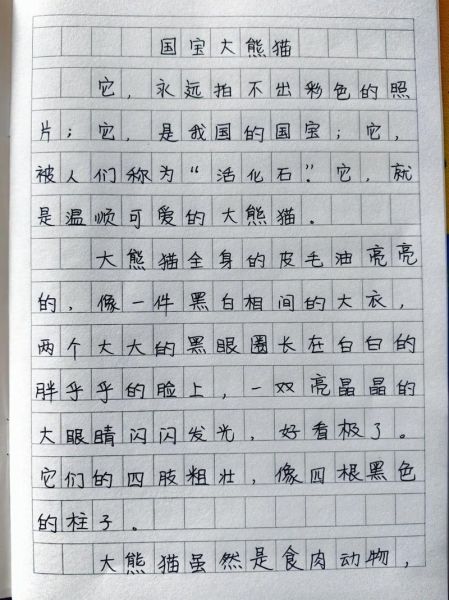 国宝大熊猫
它，永远拍不出彩色的照
片；它，是我国的国宝；它，
被人们称为“活化石”。它，就
是温顺可爱的大熊猫。
大熊猫全身的皮毛油亮亮
的，像一件黑白相间的大衣，
两个大大的黑眼圈长在白白的
胖乎乎的脸上，一双亮晶晶的
大眼睛闪闪发光，好看极了。
它们的四肢粗壮，像四根黑色
的柱子。
大熊猫虽然是食肉动物，